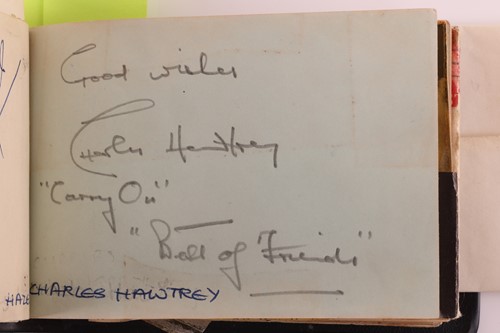 Good wishes
Charles Hawtrey
"Carry On"
" of Friends"
CHARLES HAWTREY
HAZE